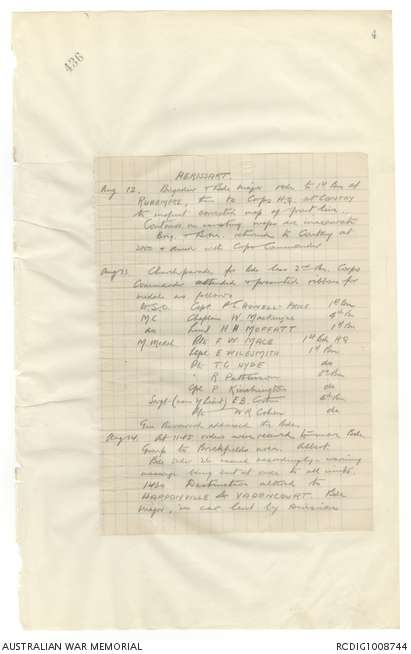 4
436
HERISSART
Aug 12. Brigadier & Bde Major rode to 1st Bn at
RUBEMPRE, then to Corps H.Q. at CONTAY
to inspect corrected map of front line.
Contours on existing maps are inaccurate
Brig. & returned to Contay at
& dined with Corps Commander
Aug 13 Church parade for Bde less 2nd Bn. Corps
Commander attended & presented ribbons for
medals as follows
D.S.O. Capt P.L. HOWELL PRICE 1st Bn
M.C. Chaplain W. MacKenzie 4th Bn
do Lieut H H MOFFATT 1st Bn
M. Medal Pte F. W. MACE 1st Bde HQ
Corpl E HILESMITH 1st Bn
Pte T.G. HYDE do
" R Patterson
Cpl P. do
Sergt (now Lieut) E.B.
Pte W R Cohen do
Gen Birdwood addressed the Bde.
Aug 14. At 11.45 orders were received to move Bde
Group to Brickfields near Albert
Bde order issued accordingly, warning
message being sent at once to all units.
1430 Destination altered to
HARPONVILLE & VADENCOURT. Bde
Major, in car lent by Division
AUSTRALIAN WAR MEMORIAL
RCDIG1008744